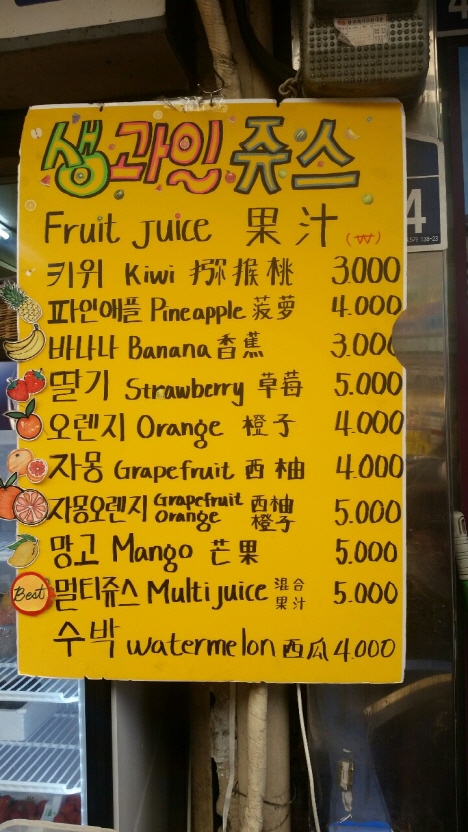 생과일 쥬스
Fruit juice 果汁 (₩)
키위 Kiwi 猕猴桃 3.000
파인애플 Pineapple 菠萝 4.000
바나나 Banana 香蕉 3.000
딸기 Strawberry 草莓 5.000
오렌지 Orange 橙子 4.000
자몽 Grapefruit 西柚 4.000
자몽오렌지 Grapefruit Orange 西柚 橙子 5.000
망고 Mango 芒果 5.000
Best 멀티쥬스 Multi juice 混合 果汁 5.000
수박 watermelon 西瓜 4.000
4